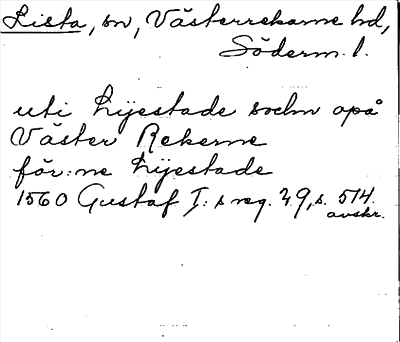 Lista, sn, Västerrekarne hd,
Söderm. l.
uti Lijestade sochn opå
Väster Rekerne
för:ne Lijestade
1560 Gustaf I:s reg. 29, s. 514.
avskr.